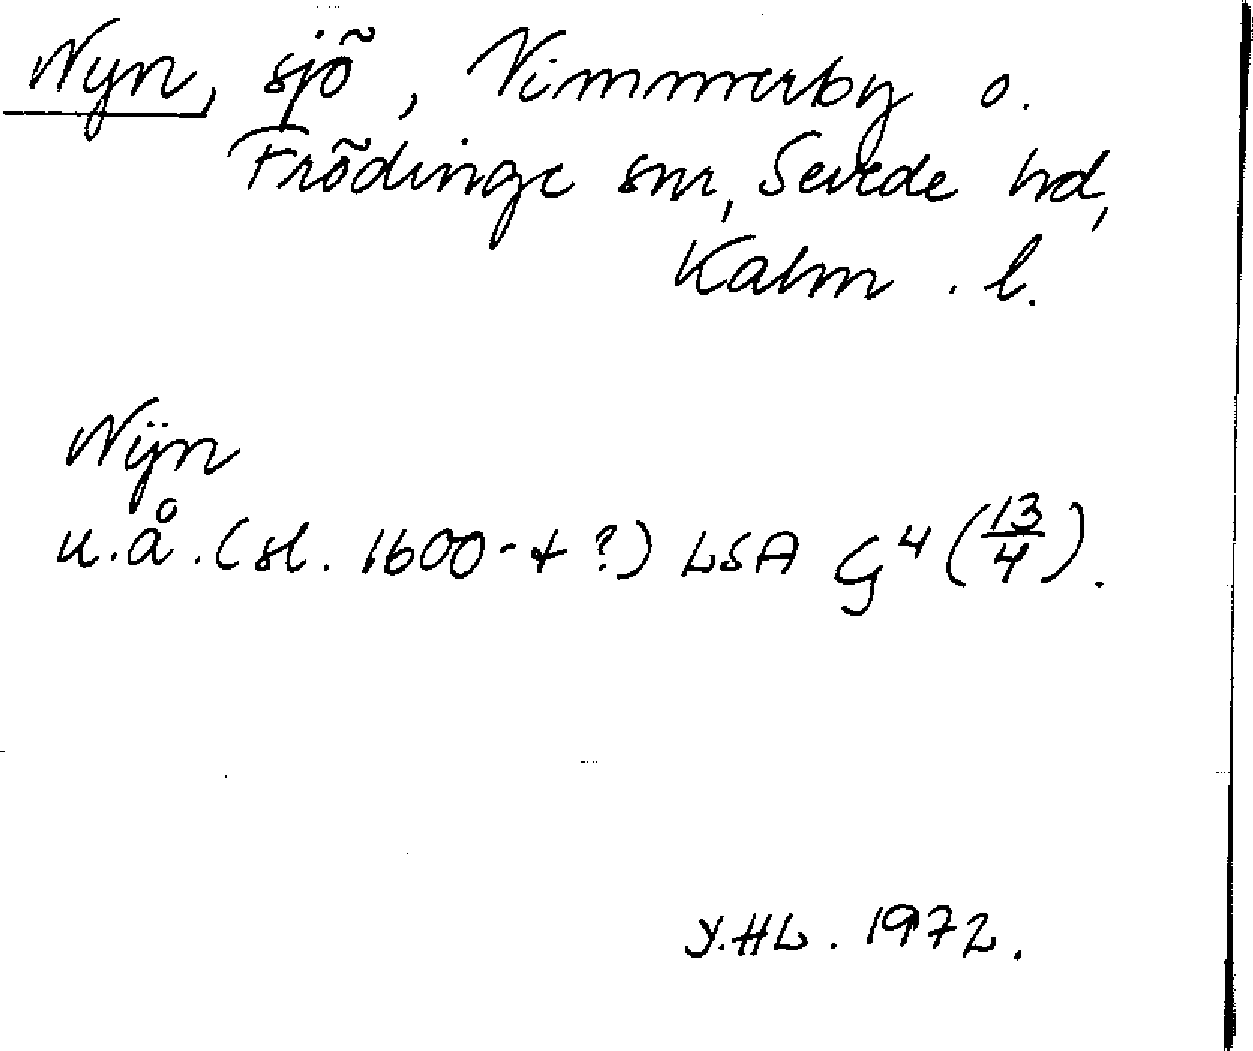 Nyn, sjö, Vimmerby o.
Frödinge snr, Sevede hd,
Kalm. l.
Nÿn
u.å. (sl. 1600-t?) LSA G⁴ (13/4).
Y.HL. 1972.